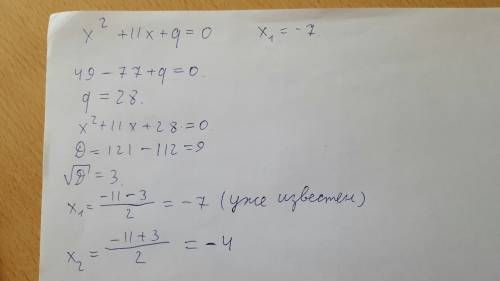 x² + 11x + q = 0 x₁ = -7
49 - 77 + q = 0.
q = 28.
x² + 11x + 28 = 0.
D = 121 - 112 = 9
√D = 3.
x₁ = (-11 - 3)/2 = -7 (уже известен)
x₂ = (-11 + 3)/2 = -4